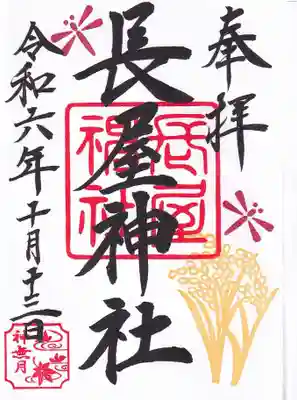 奉拝
長屋神社
長屋
神社
令和六年十月十三日
神無月